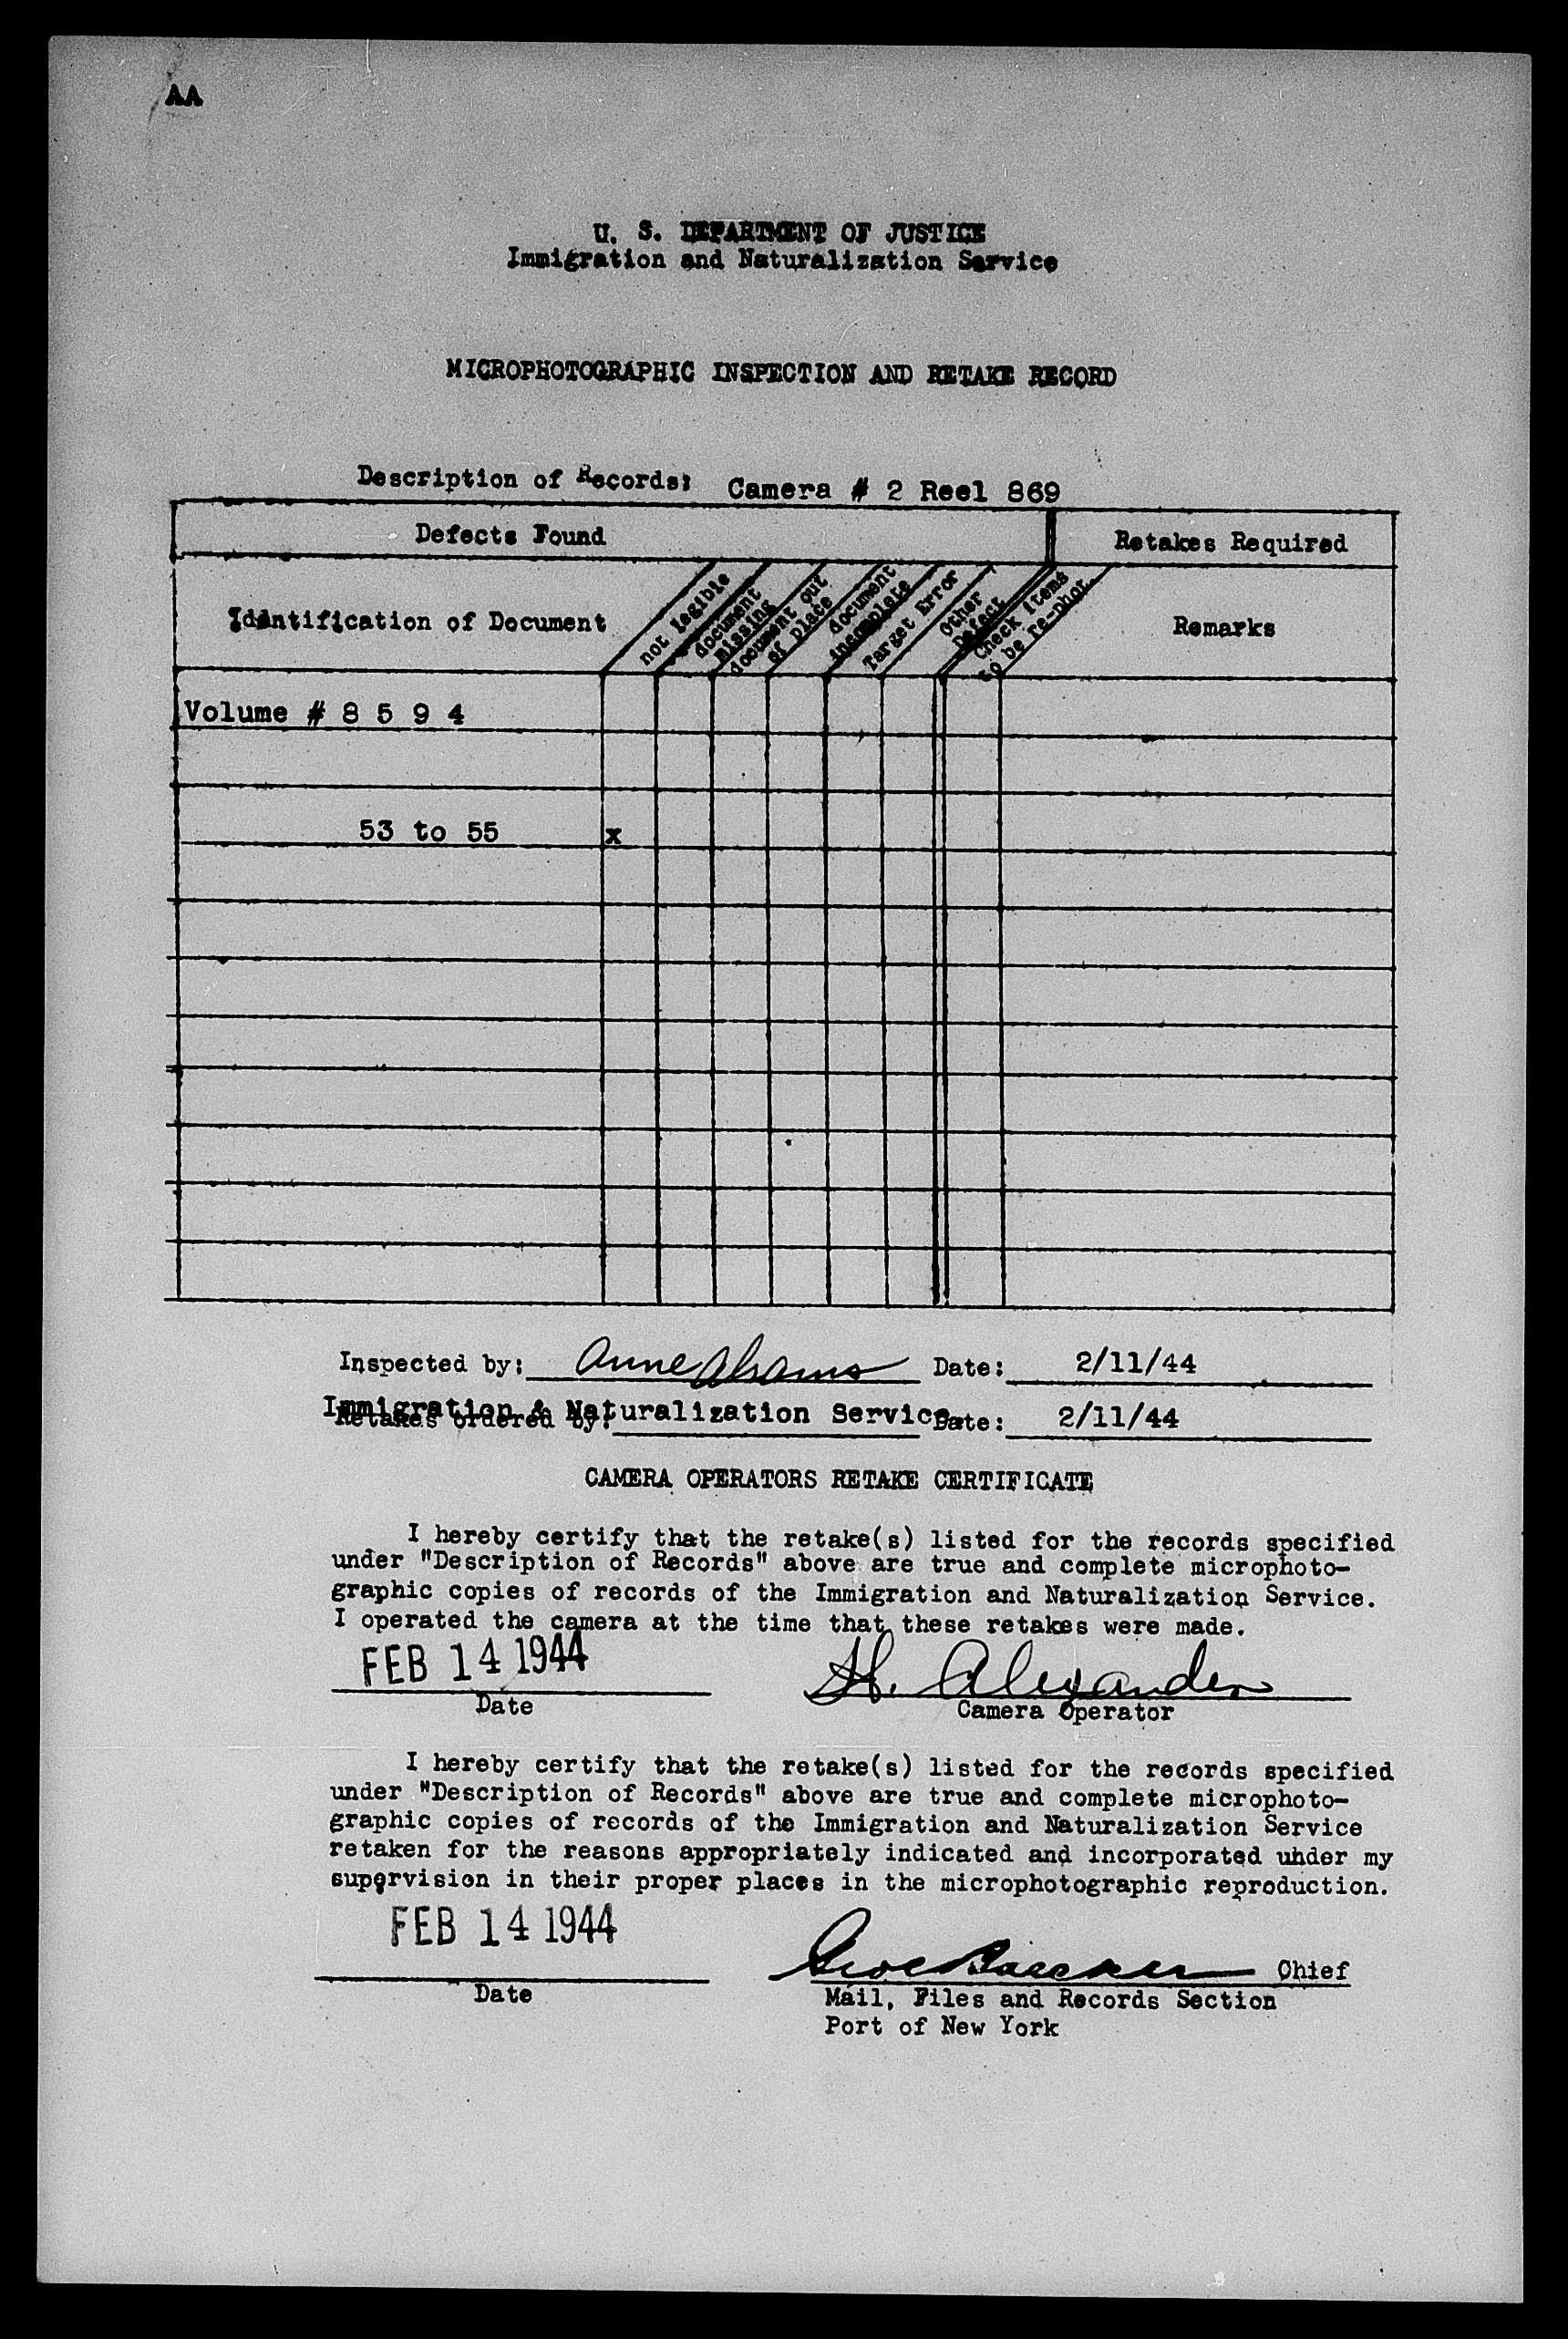 AA
U. S. DEPARTMENT OF JUSTICE
Immigration and Naturalization Service
MICROPHOTOGRAPHIC INSPECTION AND RETAKE RECORD
Description of Records: Camera # 2 Reel 869
Defects Found
Retakes Required
Identification of Document
not legible
document
missing
document out
of place
document
incomplete
Target Error
Other
Defect
Check items
to be re-phot.
Remarks
Volume # 8 5 9 4
53 to 55 x
Inspected by: Anne Abrams Date: 2/11/44
Immigration & Naturalization Service
Retakes ordered by: Date: 2/11/44
CAMERA OPERATORS RETAKE CERTIFICATE
I hereby certify that the retake(s) listed for the records specified
under "Description of Records" above are true and complete microphoto-
graphic copies of records of the Immigration and Naturalization Service.
I operated the camera at the time that these retakes were made.
FEB 14 1944
H. Alexander
Date
Camera Operator
I hereby certify that the retake(s) listed for the records specified
under "Description of Records" above are true and complete microphoto-
graphic copies of records of the Immigration and Naturalization Service
retaken for the reasons appropriately indicated and incorporated under my
supervision in their proper places in the microphotographic reproduction.
FEB 14 1944
Chief
Date
Mail, Files and Records Section
Port of New York